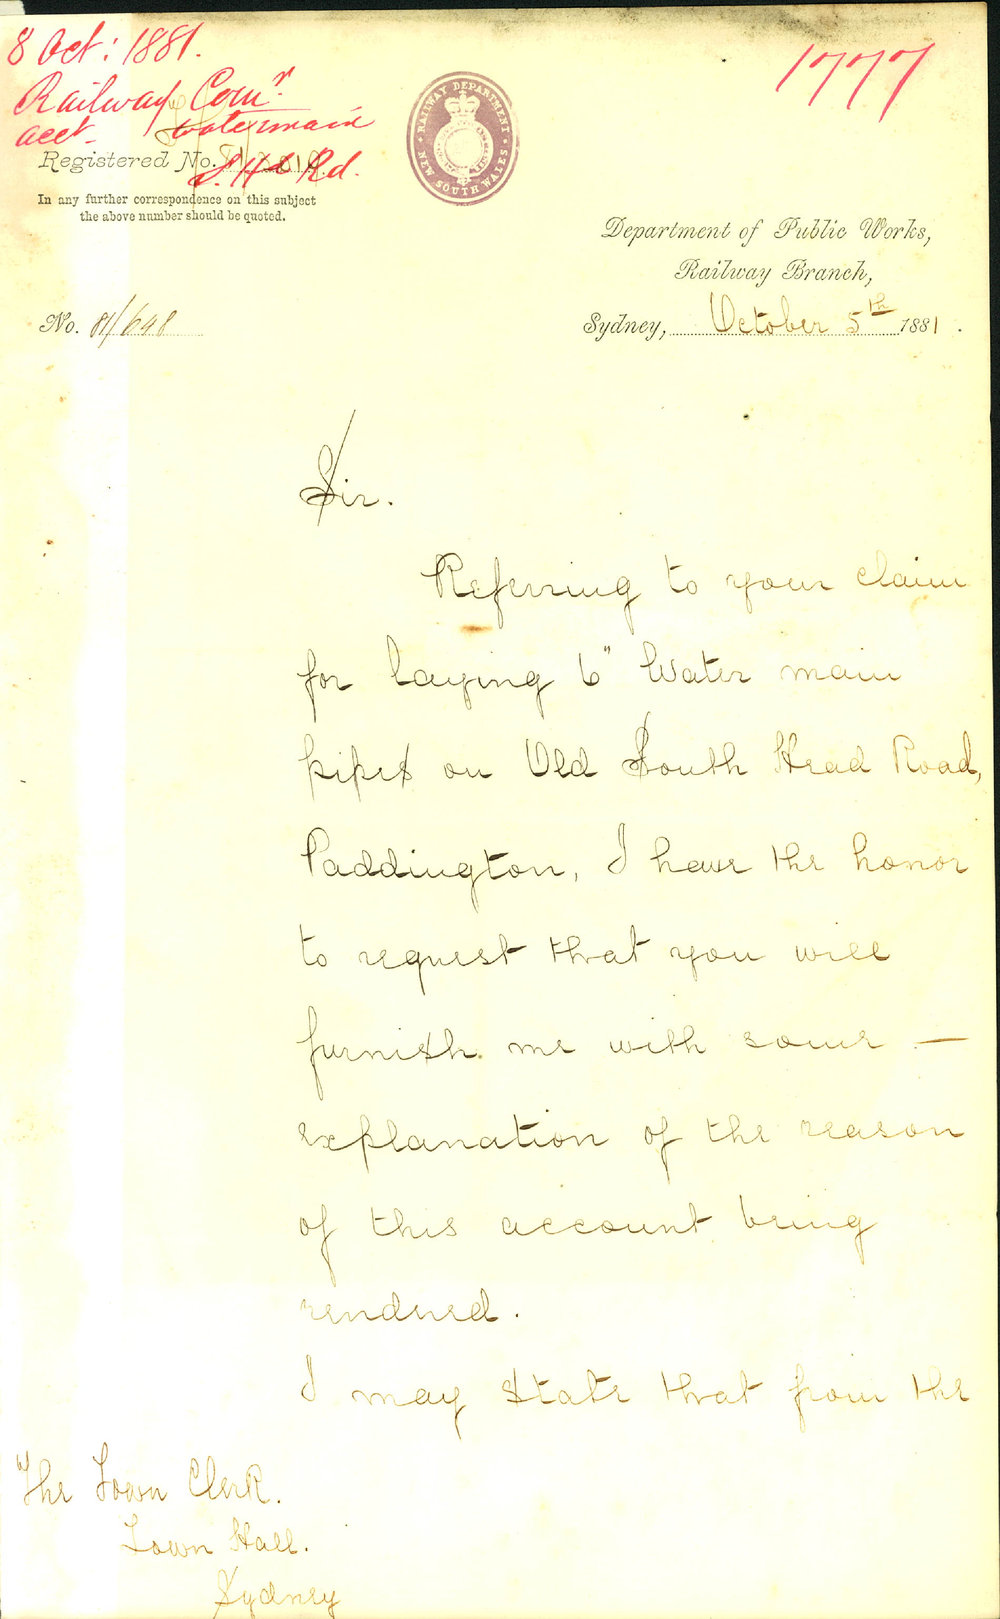 8 Oct: 1881.
Railway Comr.
acct. watermain
S. Hd Rd.
1777
RAILWAY DEPARTMENT
NEW SOUTH WALES
Registered No.
In any further correspondence on this subject
the above number should be quoted.
Department of Public Works,
Railway Branch,
No. 81/648
Sydney, October 5th 1881.
Sir.
Referring to your claim
for laying 6" Water main
pipes on Old South Head Road,
Paddington, I have the honor
to request that you will
furnish me with some —
explanation of the reason
of this account being
rendered.
I may state that from the
The Town Clerk.
Town Hall.
Sydney